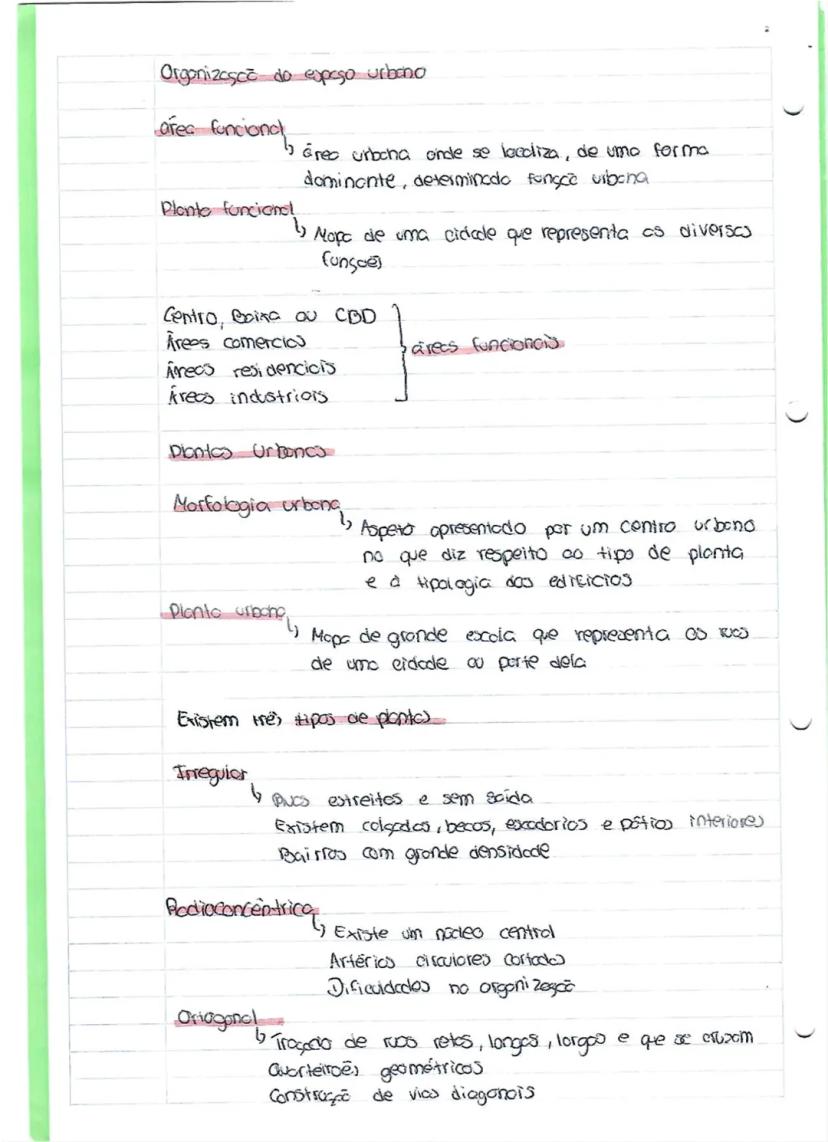 Organização do espaço urbano
área funcional
↳ área urbana onde se localiza, de uma forma
dominante, determinada função urbana
Planta funcional
↳ Mapa de uma cidade que representa as diversas
funções
Centro, Baixa ou CBD
Áreas comercias
Áreas residenciais
Áreas industriais
áreas funcionais
Plantas Urbanas
Morfologia urbana
↳ Aspeto apresentado por um centro urbano
no que diz respeito ao tipo de planta
e à tipologia dos edifícios
Planta urbana
↳ Mapa de grande escala que representa as ruas
de uma cidade ou parte dela
Existem três tipos de plantas
Irregular
↳ Ruas estreitas e sem saída
Existem calçadas, becos, escadarias e pátios interiores
Bairros com grande densidade
Radioconcêntrica
↳ Existe um núcleo central
Artérias circulares cortadas
Dificuldades na organização
Ortogonal
↳ Traçado de ruas retas, longas, largas e que se cruzam
Quarteirões geométricos
Construção de vias diagonais